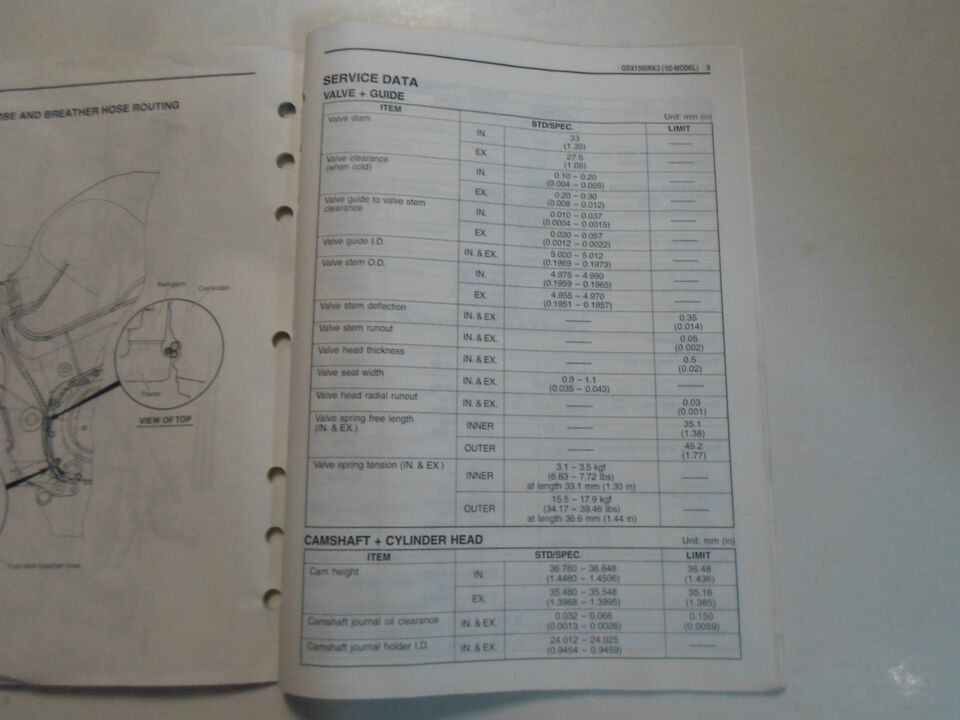 OSE AND BREATHER HOSE ROUTING
Swingarm
Crankcase
Frame
VIEW OF TOP
Fuel tank breather hose
GSX1300RK2 ('02-MODEL) 9
SERVICE DATA
VALVE + GUIDE
Unit: mm (in)
ITEM STD/SPEC. LIMIT
Valve diam. IN. 33 (1.30) ——
EX. 27.5 (1.08) ——
Valve clearance (when cold) IN. 0.10 – 0.20 (0.004 – 0.008) ——
EX. 0.20 – 0.30 (0.008 – 0.012) ——
Valve guide to valve stem clearance IN. 0.010 – 0.037 (0.0004 – 0.0015) ——
EX. 0.030 – 0.057 (0.0012 – 0.0022) ——
Valve guide I.D. IN. & EX. 5.000 – 5.012 (0.1969 – 0.1973) ——
Valve stem O.D. IN. 4.975 – 4.990 (0.1959 – 0.1965) ——
EX. 4.955 – 4.970 (0.1951 – 0.1957) ——
Valve stem deflection IN. & EX. —— 0.35 (0.014)
Valve stem runout IN. & EX. —— 0.05 (0.002)
Valve head thickness IN. & EX. —— 0.5 (0.02)
Valve seat width IN. & EX. 0.9 – 1.1 (0.035 – 0.043) ——
Valve head radial runout IN. & EX. —— 0.03 (0.001)
Valve spring free length (IN. & EX.) INNER —— 35.1 (1.38)
OUTER —— 45.2 (1.77)
Valve spring tension (IN. & EX.) INNER 3.1 – 3.5 kgf (6.83 – 7.72 lbs) at length 33.1 mm (1.30 in) ——
OUTER 15.5 – 17.9 kgf (34.17 – 39.46 lbs) at length 36.6 mm (1.44 in) ——
CAMSHAFT + CYLINDER HEAD
Unit: mm (in)
ITEM STD/SPEC. LIMIT
Cam height IN. 36.780 – 36.848 (1.4480 – 1.4506) 36.48 (1.436)
EX. 35.480 – 35.548 (1.3968 – 1.3995) 35.18 (1.385)
Camshaft journal oil clearance IN. & EX. 0.032 – 0.066 (0.0013 – 0.0026) 0.150 (0.0059)
Camshaft journal holder I.D. IN. & EX. 24.012 – 24.025 (0.9454 – 0.9459) ——